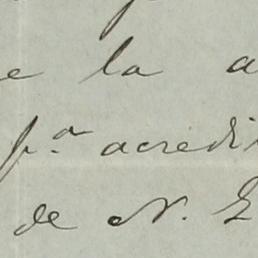 e la a
p.ª acredi
de N. E